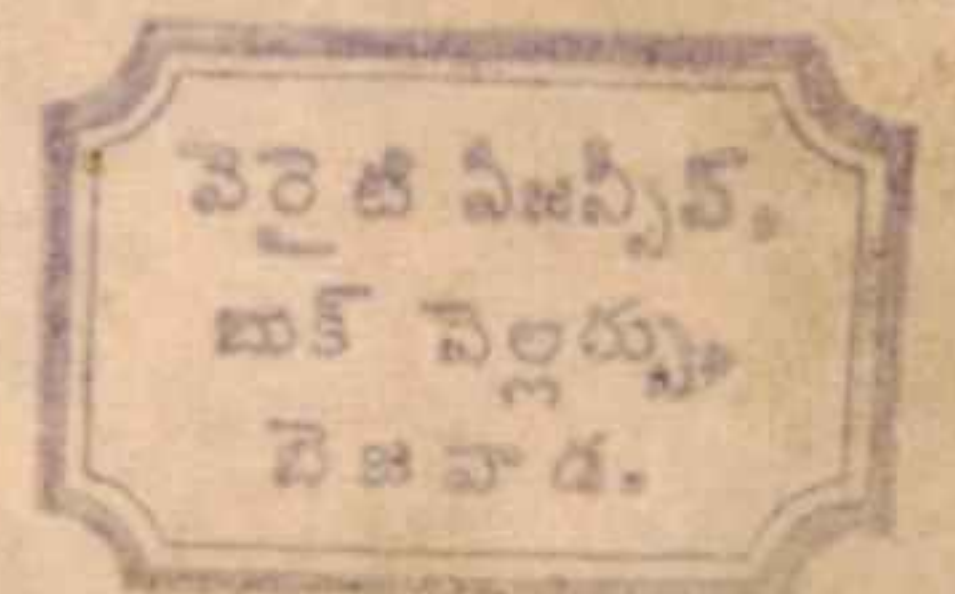 వెరైటి ఏజన్సీస్.
బుక్ సెల్లర్సు,
బెజవాడ.